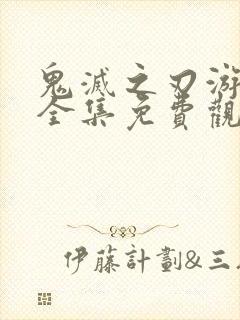 鬼滅之刃游
全集免費觀
伊藤計劃&三